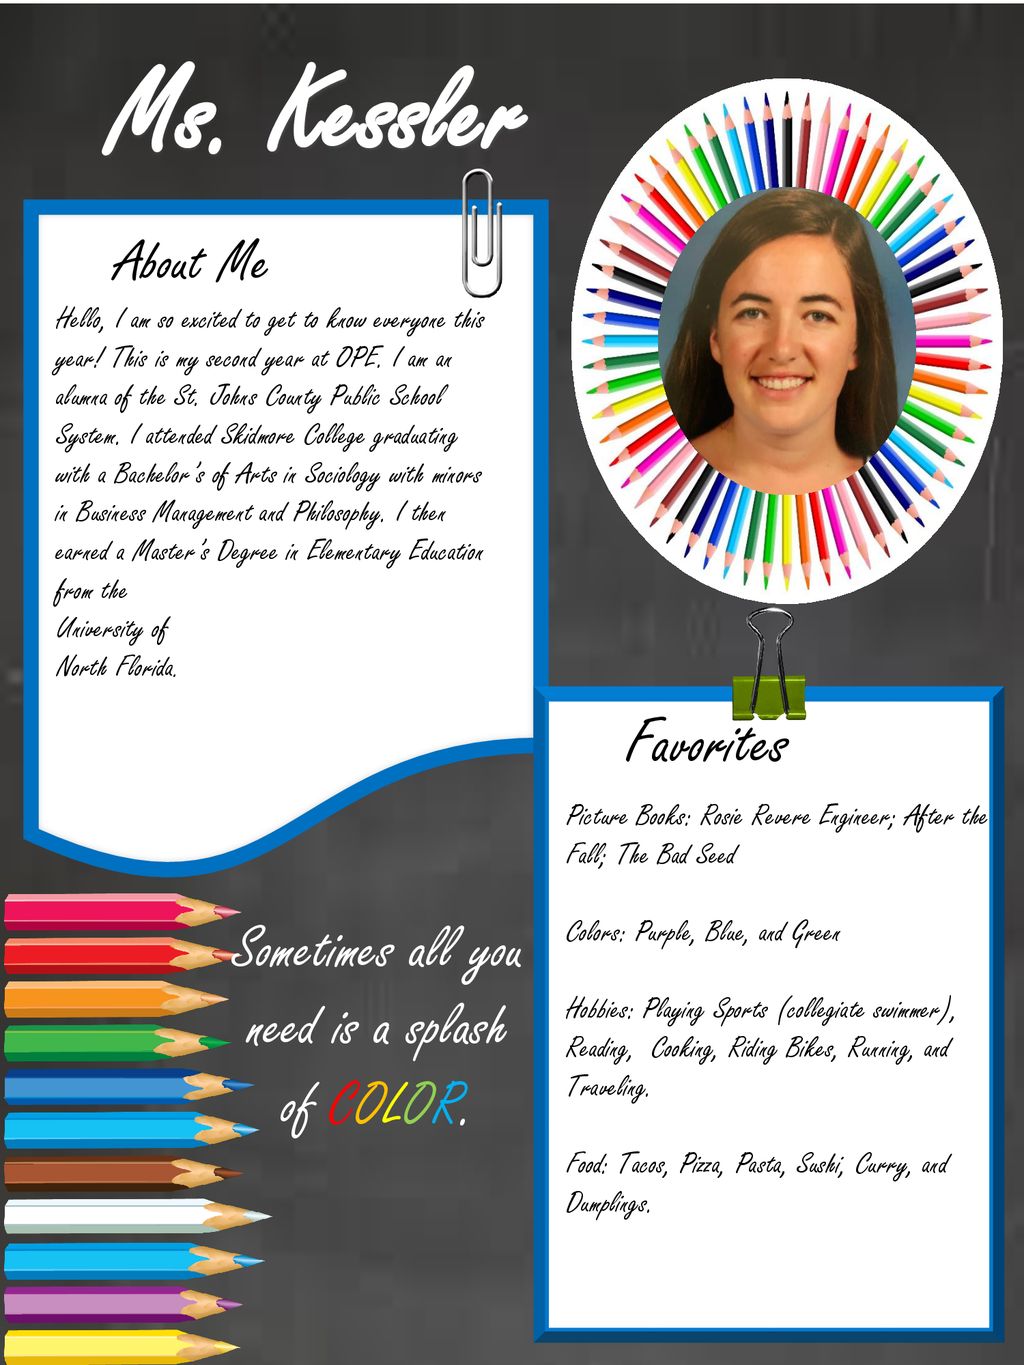 Ms. Kessler
About Me
Hello, I am so excited to get to know everyone this
year! This is my second year at OPE. I am an
alumna of the St. Johns County Public School
System. I attended Skidmore College graduating
with a Bachelor's of Arts in Sociology with minors
in Business Management and Philosophy. I then
earned a Master's Degree in Elementary Education
from the
University of
North Florida.
Favorites
Picture Books: Rosie Revere Engineer; After the
Fall; The Bad Seed
Colors: Purple, Blue, and Green
Hobbies: Playing Sports (collegiate swimmer),
Reading, Cooking, Riding Bikes, Running, and
Traveling.
Food: Tacos, Pizza, Pasta, Sushi, Curry, and
Dumplings.
Sometimes all you
need is a splash
of COLOR.